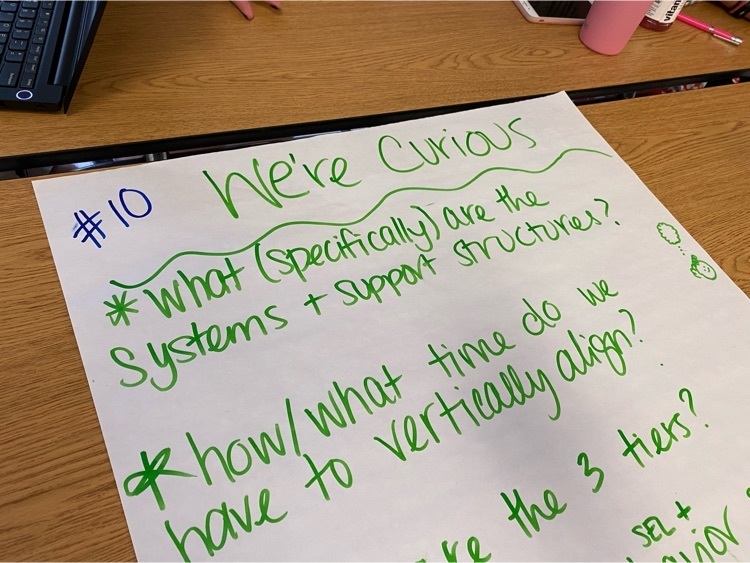 #10
We're Curious
* What (specifically) are the
systems + support structures?
* how/what time do we
have to vertically align?
the 3 tiers?
SEL +